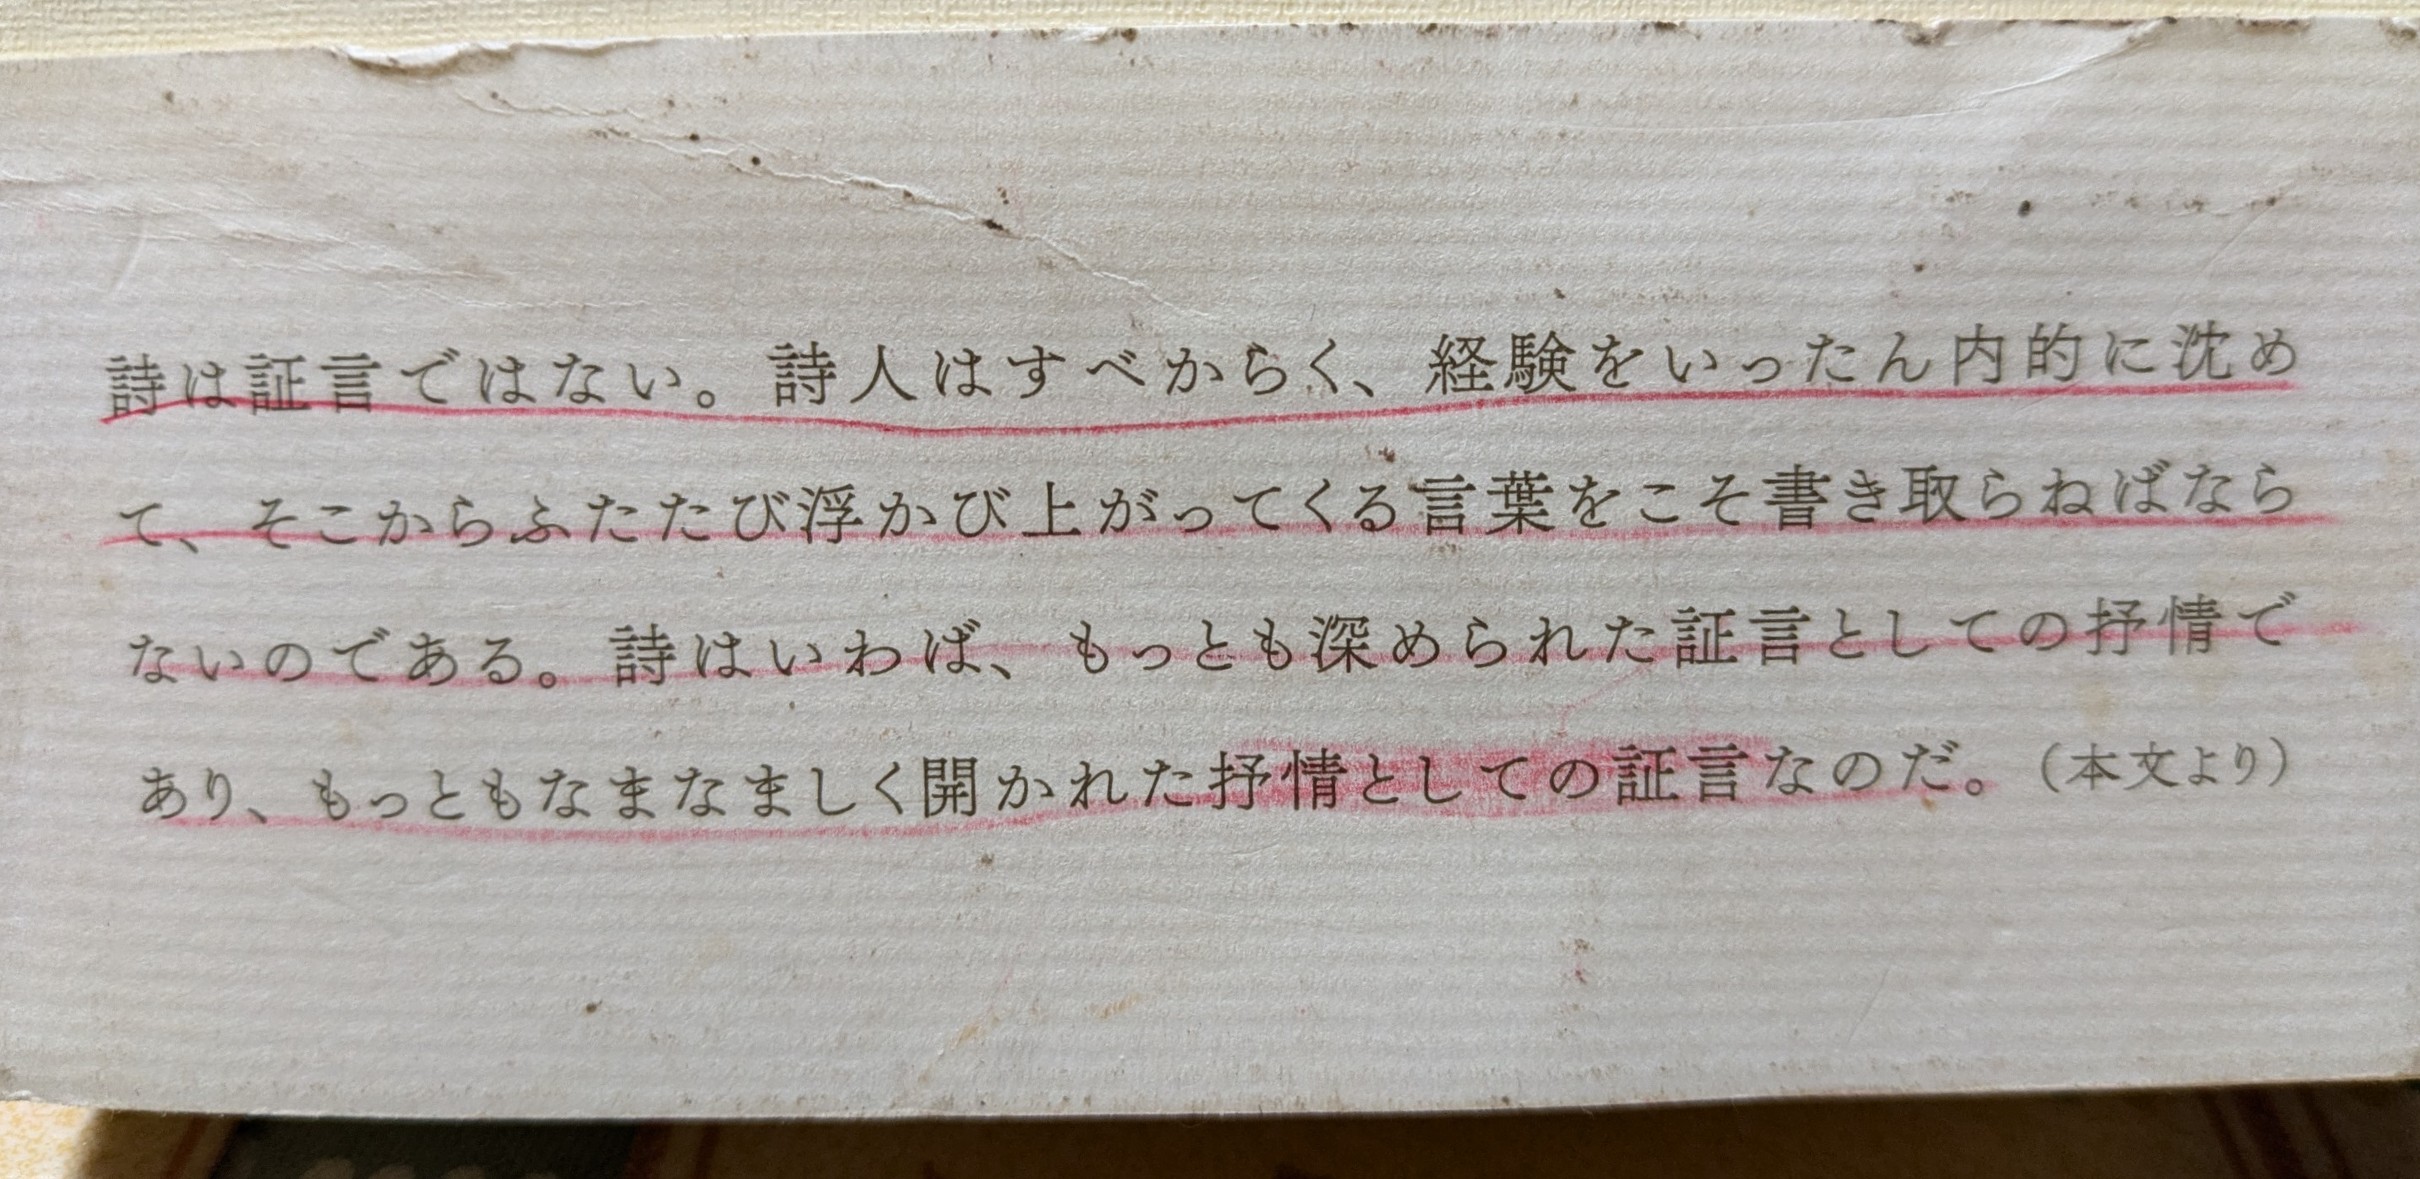 詩は証言ではない。詩人はすべからく、経験をいったん内的に沈め
て、そこからふたたび浮かび上がってくる言葉をこそ書き取らねばなら
ないのである。詩はいわば、もっとも深められた証言としての抒情で
あり、もっともなまなましく開かれた抒情としての証言なのだ。（本文より）